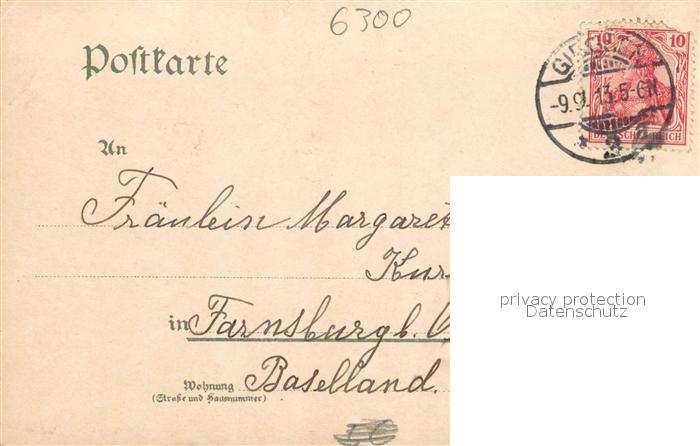 6300
Postkarte
10 10
-9.9.13.5-6N.
DEUTSCHES REICH
An
Fräulein Margaret
Kur
in Farnsburg b.
Baselland.
Wohnung
(Straße und Hausnummer)
privacy protection
Datenschutz